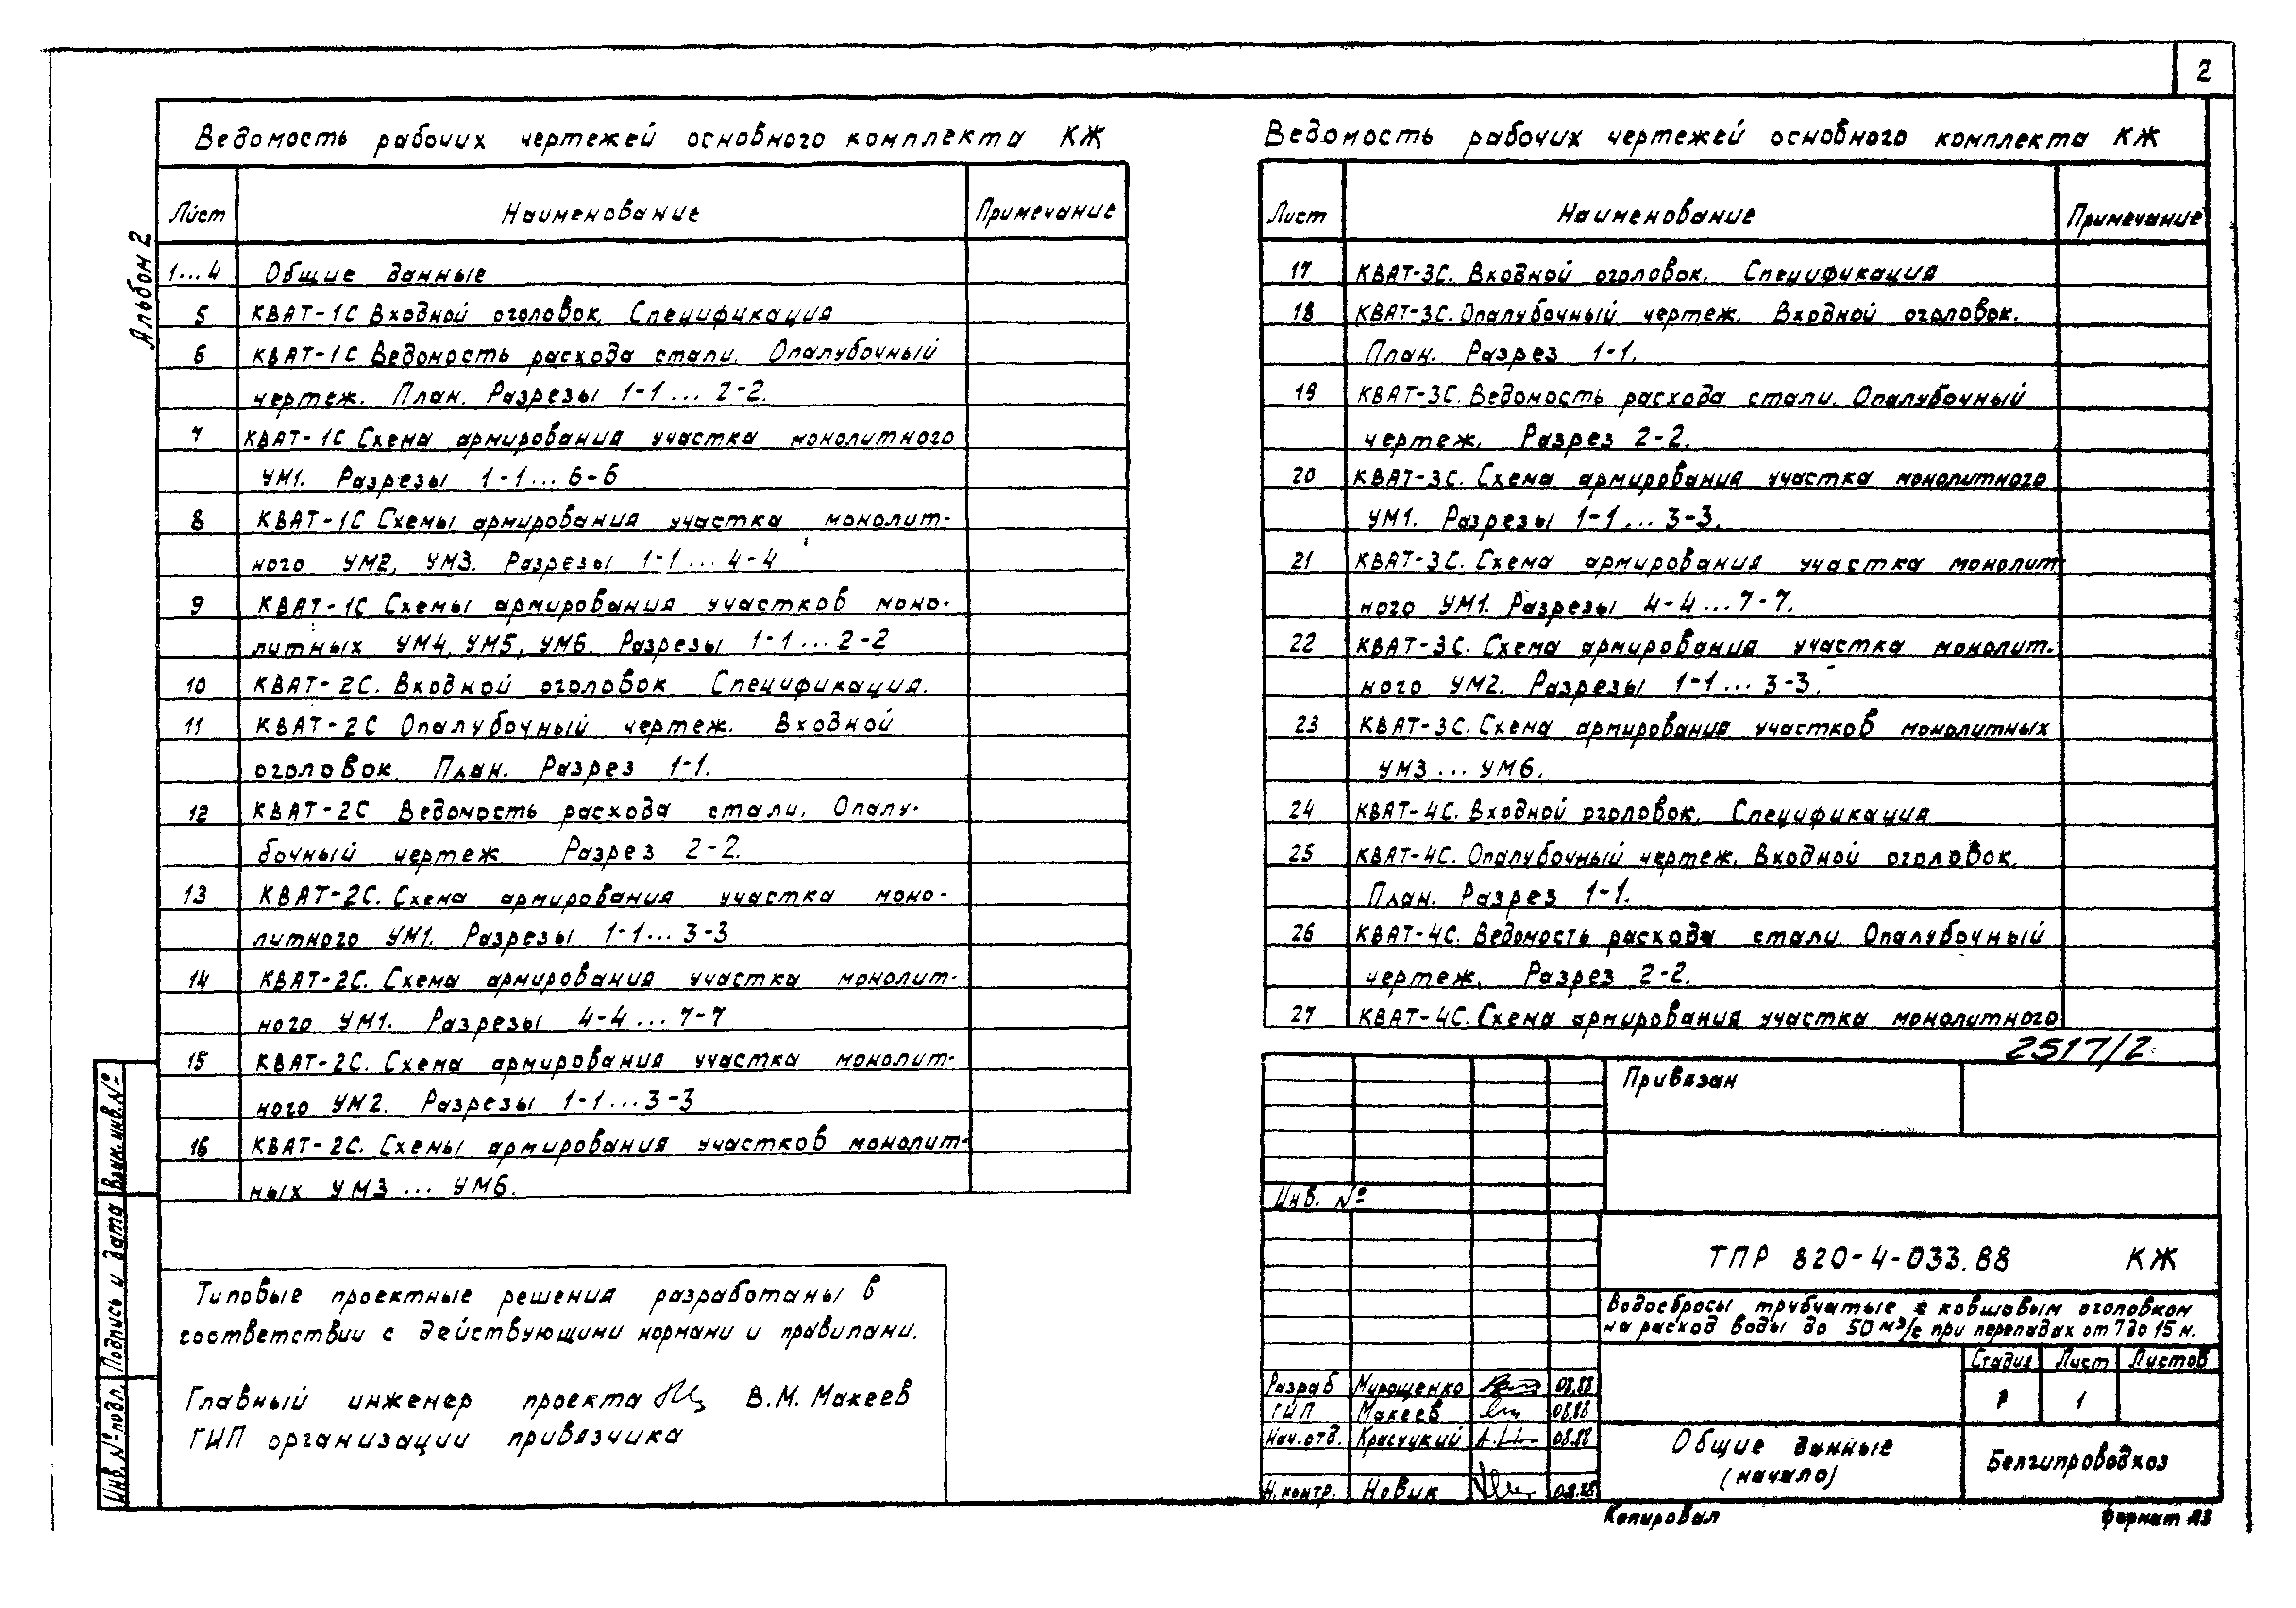 2
Альбом 2
Ведомость рабочих чертежей основного комплекта КЖ
Лист Наименование Примечание
1...4 Общие данные
5 КВАТ-1С Входной оголовок. Спецификация
6 КВАТ-1С Ведомость расхода стали. Опалубочный
чертеж. План. Разрезы 1-1 ... 2-2.
7 КВАТ-1С Схема армирования участка монолитного
УМ1. Разрезы 1-1 ... 6-6
8 КВАТ-1С Схемы армирования участка монолит-
ного УМ2, УМ3. Разрезы 1-1 ... 4-4
9 КВАТ-1С Схемы армирования участков моно-
литных УМ4, УМ5, УМ6. Разрезы 1-1 ... 2-2
10 КВАТ-2С. Входной оголовок Спецификация.
11 КВАТ-2С Опалубочный чертеж. Входной
оголовок. План. Разрез 1-1.
12 КВАТ-2С Ведомость расхода стали. Опалу-
бочный чертеж. Разрез 2-2.
13 КВАТ-2С. Схема армирования участка моно-
литного УМ1. Разрезы 1-1 ... 3-3
14 КВАТ-2С. Схема армирования участка монолит-
ного УМ1. Разрезы 4-4 ... 7-7
15 КВАТ-2С. Схема армирования участка монолит-
ного УМ2. Разрезы 1-1 ... 3-3
16 КВАТ-2С. Схемы армирования участков монолит-
ных УМ3 ... УМ6.
Типовые проектные решения разработаны в
соответствии с действующими нормами и правилами.
Главный инженер проекта В.М. Макеев
ГИП организации привязчика
Взам. инв. №
Подпись и дата
Инв. № подл.
Ведомость рабочих чертежей основного комплекта КЖ
Лист Наименование Примечание
17 КВАТ-3С. Входной оголовок. Спецификация
18 КВАТ-3С. Опалубочный чертеж. Входной оголовок.
План. Разрез 1-1.
19 КВАТ-3С. Ведомость расхода стали. Опалубочный
чертеж. Разрез 2-2.
20 КВАТ-3С. Схема армирования участка монолитного
УМ1. Разрезы 1-1 ... 3-3.
21 КВАТ-3С. Схема армирования участка монолит
ного УМ1. Разрезы 4-4 ... 7-7.
22 КВАТ-3С. Схема армирования участка монолит-
ного УМ2. Разрезы 1-1 ... 3-3.
23 КВАТ-3С. Схема армирования участков монолитных
УМ3 ... УМ6.
24 КВАТ-4С. Входной оголовок. Спецификация
25 КВАТ-4С. Опалубочный чертеж. Входной оголовок.
План. Разрез 1-1.
26 КВАТ-4С. Ведомость расхода стали. Опалубочный
чертеж. Разрез 2-2.
27 КВАТ-4С. Схема армирования участка монолитного
2517/2
Привязан
Инв. №
ТПР 820-4-033.88 КЖ
Водосбросы трубчатые с ковшовым оголовком
на расход воды до 50 м³/с при перепадах от 7 до 15 м.
Стадия Лист Листов
Р 1
Разраб Мурощенко 08.88
ГИП Макеев 08.88
Нач. отд. Красуцкий 08.88
Н. контр. Новик
Общие данные
(начало)
Белгипроводхоз
Копировал Формат А3